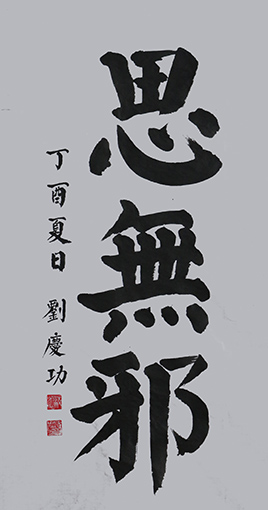 思無邪
丁酉夏日 劉慶功